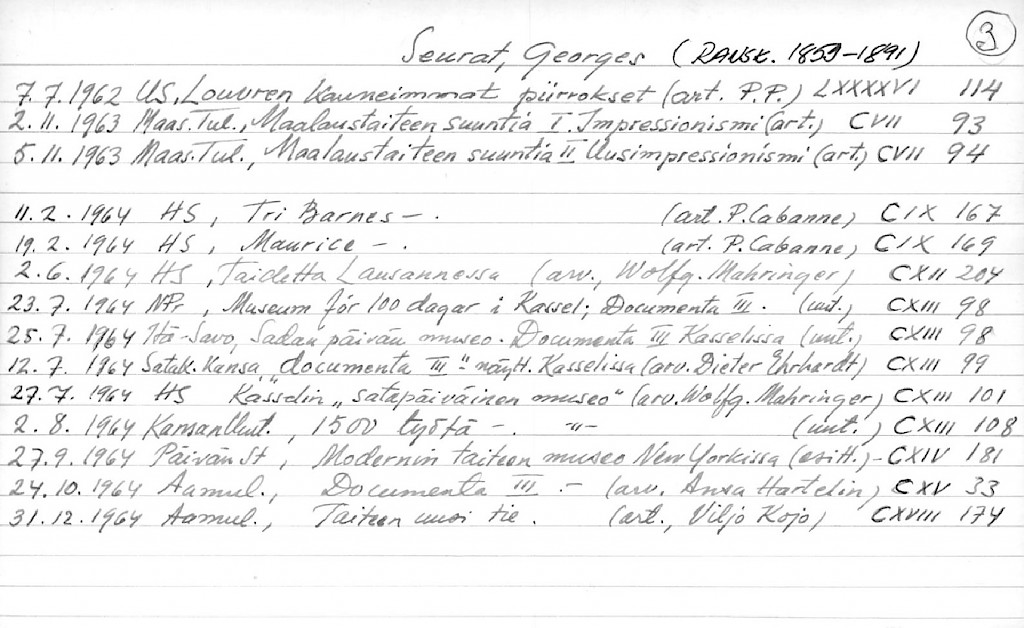 3
Seurat, Georges (RANSK. 1859-1891)
7.7.1962 US, Louvren kauneimmat piirrokset (art. P.P.) LXXXXVI 114
2.11.1963 Maas.Tul., Maalaustaiteen suuntia I. Impressionismi (art.) CVII 93
5.11.1963 Maas.Tul., Maalaustaiteen suuntia II Uusimpressionismi (art.) CVII 94
11.2.1964 HS, Tri Barnes - . (art. P.Cabanne) CIX 167
19.2.1964 HS, Maurice - . (art. P.Cabanne) CIX 169
2.6.1964 HS, Taidetta Lausannessa (arv., Wolfg. Mahringer) CXII 204
23.7.1964 NPr, Museum för 100 dagar i Kassel; Documenta III. (uut.) CXIII 98
25.7.1964 Itä-Savo, Sadan päivän museo. Documenta III Kasselissa (uut.) CXIII 98
12.7.1964 Satak.Kansa, "documenta III" näytt. Kasselissa (arv. Dieter Ehrhardt) CXIII 99
27.7.1964 HS Kasselin "satapäiväinen museo" (arv. Wolfg. Mahringer) CXIII 101
2.8.1964 KansanUut., 1500 työtä - . -"- (uut.) CXIII 108
27.9.1964 PäivänS, Modernin taiteen museo New Yorkissa (esitt.) - CXIV 181
24.10.1964 Aamul., Documenta III .- (arv. Ansa Hartelin) CXV 33
31.12.1964 Aamul., Taiteen uusi tie. (art., Viljo Kojo) CXVIII 174